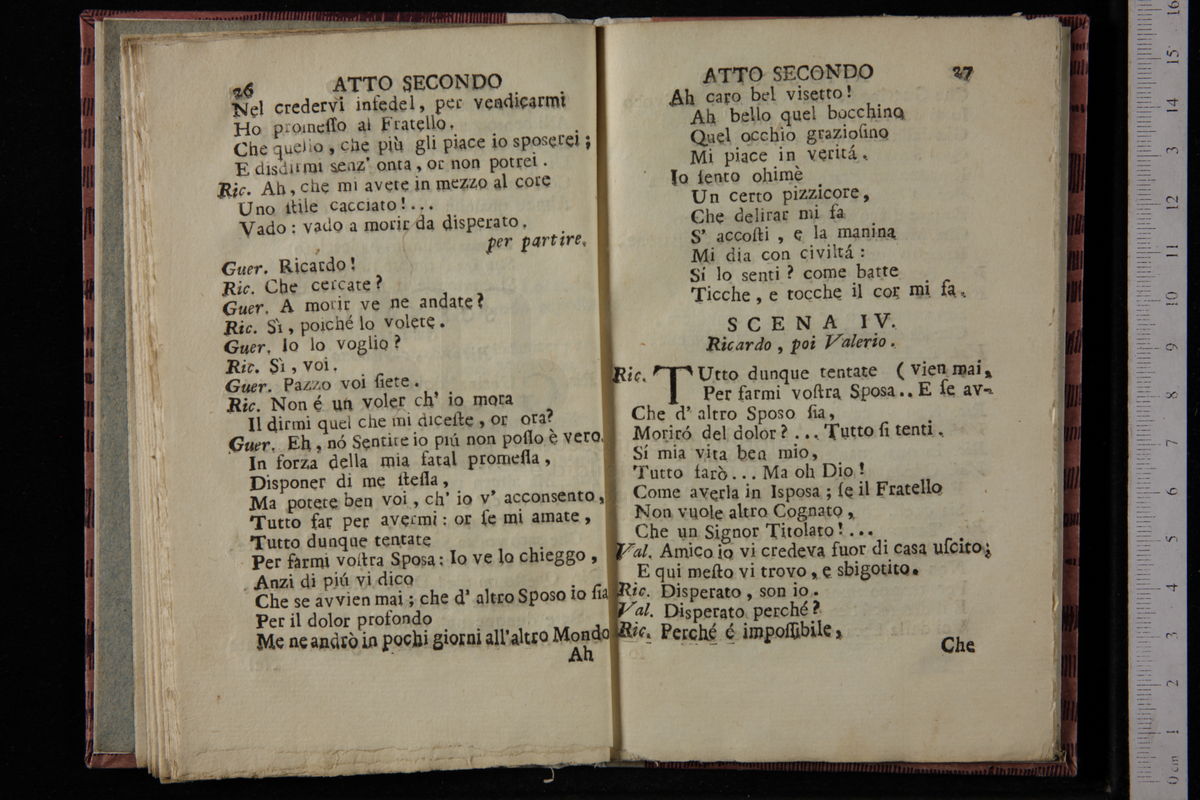 26 ATTO SECONDO
Nel credervi infedel, per vendicarmi
Ho promeſſo al Fratello,
Che quello, che più gli piace io sposerei;
E disdirmi senz' onta, or non potrei.
Ric. Ah, che mi avete in mezzo al core
Uno ſtile cacciato!...
Vado: vado a morir da disperato.
per partire.
Guer. Ricardo!
Ric. Che cercate?
Guer. A morir ve ne andate?
Ric. Sì, poiché lo volete.
Guer. Io lo voglio?
Ric. Sì, voi.
Guer. Pazzo voi ſiete.
Ric. Non é un voler ch' io mora
Il dirmi quel che mi diceſte, or ora?
Guer. Eh, nó Sentite io piú non poſſo è vero.
In forza della mia fatal promeſſa,
Disponer di me ſteſſa,
Ma potete ben voi, ch' io v' acconsento,
Tutto far per avermi: or ſe mi amate,
Tutto dunque tentate
Per farmi voſtra Sposa: Io ve lo chieggo,
Anzi di piú vi dico
Che se avvien mai; che d' altro Sposo io ſia
Per il dolor profondo
Me ne andrò in pochi giorni all'altro Mondo
Ah
ATTO SECONDO 27
Ah caro bel visetto!
Ah bello quel bocchino
Quel occhio grazioſino
Mi piace in veritá.
Io ſento ohimè
Un certo pizzicore,
Che delirar mi fa
S' accoſti, e la manina
Mi dia con civiltá:
Si lo senti? come batte
Ticche, e tocche il cor mi fa.
SCENA IV.
Ricardo, poi Valerio.
Ric. TUtto dunque tentate (vien mai,
Per farmi voſtra Sposa.. E ſe av-
Che d' altro Sposo ſia,
Moriró del dolor?... Tutto ſi tenti.
Sí mia vita ben mio,
Tutto farò... Ma oh Dio!
Come averla in Isposa; ſe il Fratello
Non vuole altro Cognato,
Che un Signor Titolato!...
Val. Amico io vi credeva fuor di casa uſcito;
E qui meſto vi trovo, e sbigotito.
Ric. Disperato, son io.
Val. Disperato perché?
Ric. Perché é impoſſibile,
Che
0 cm 1 2 3 4 5 6 7 8 9 10 11 12 13 14 15 16